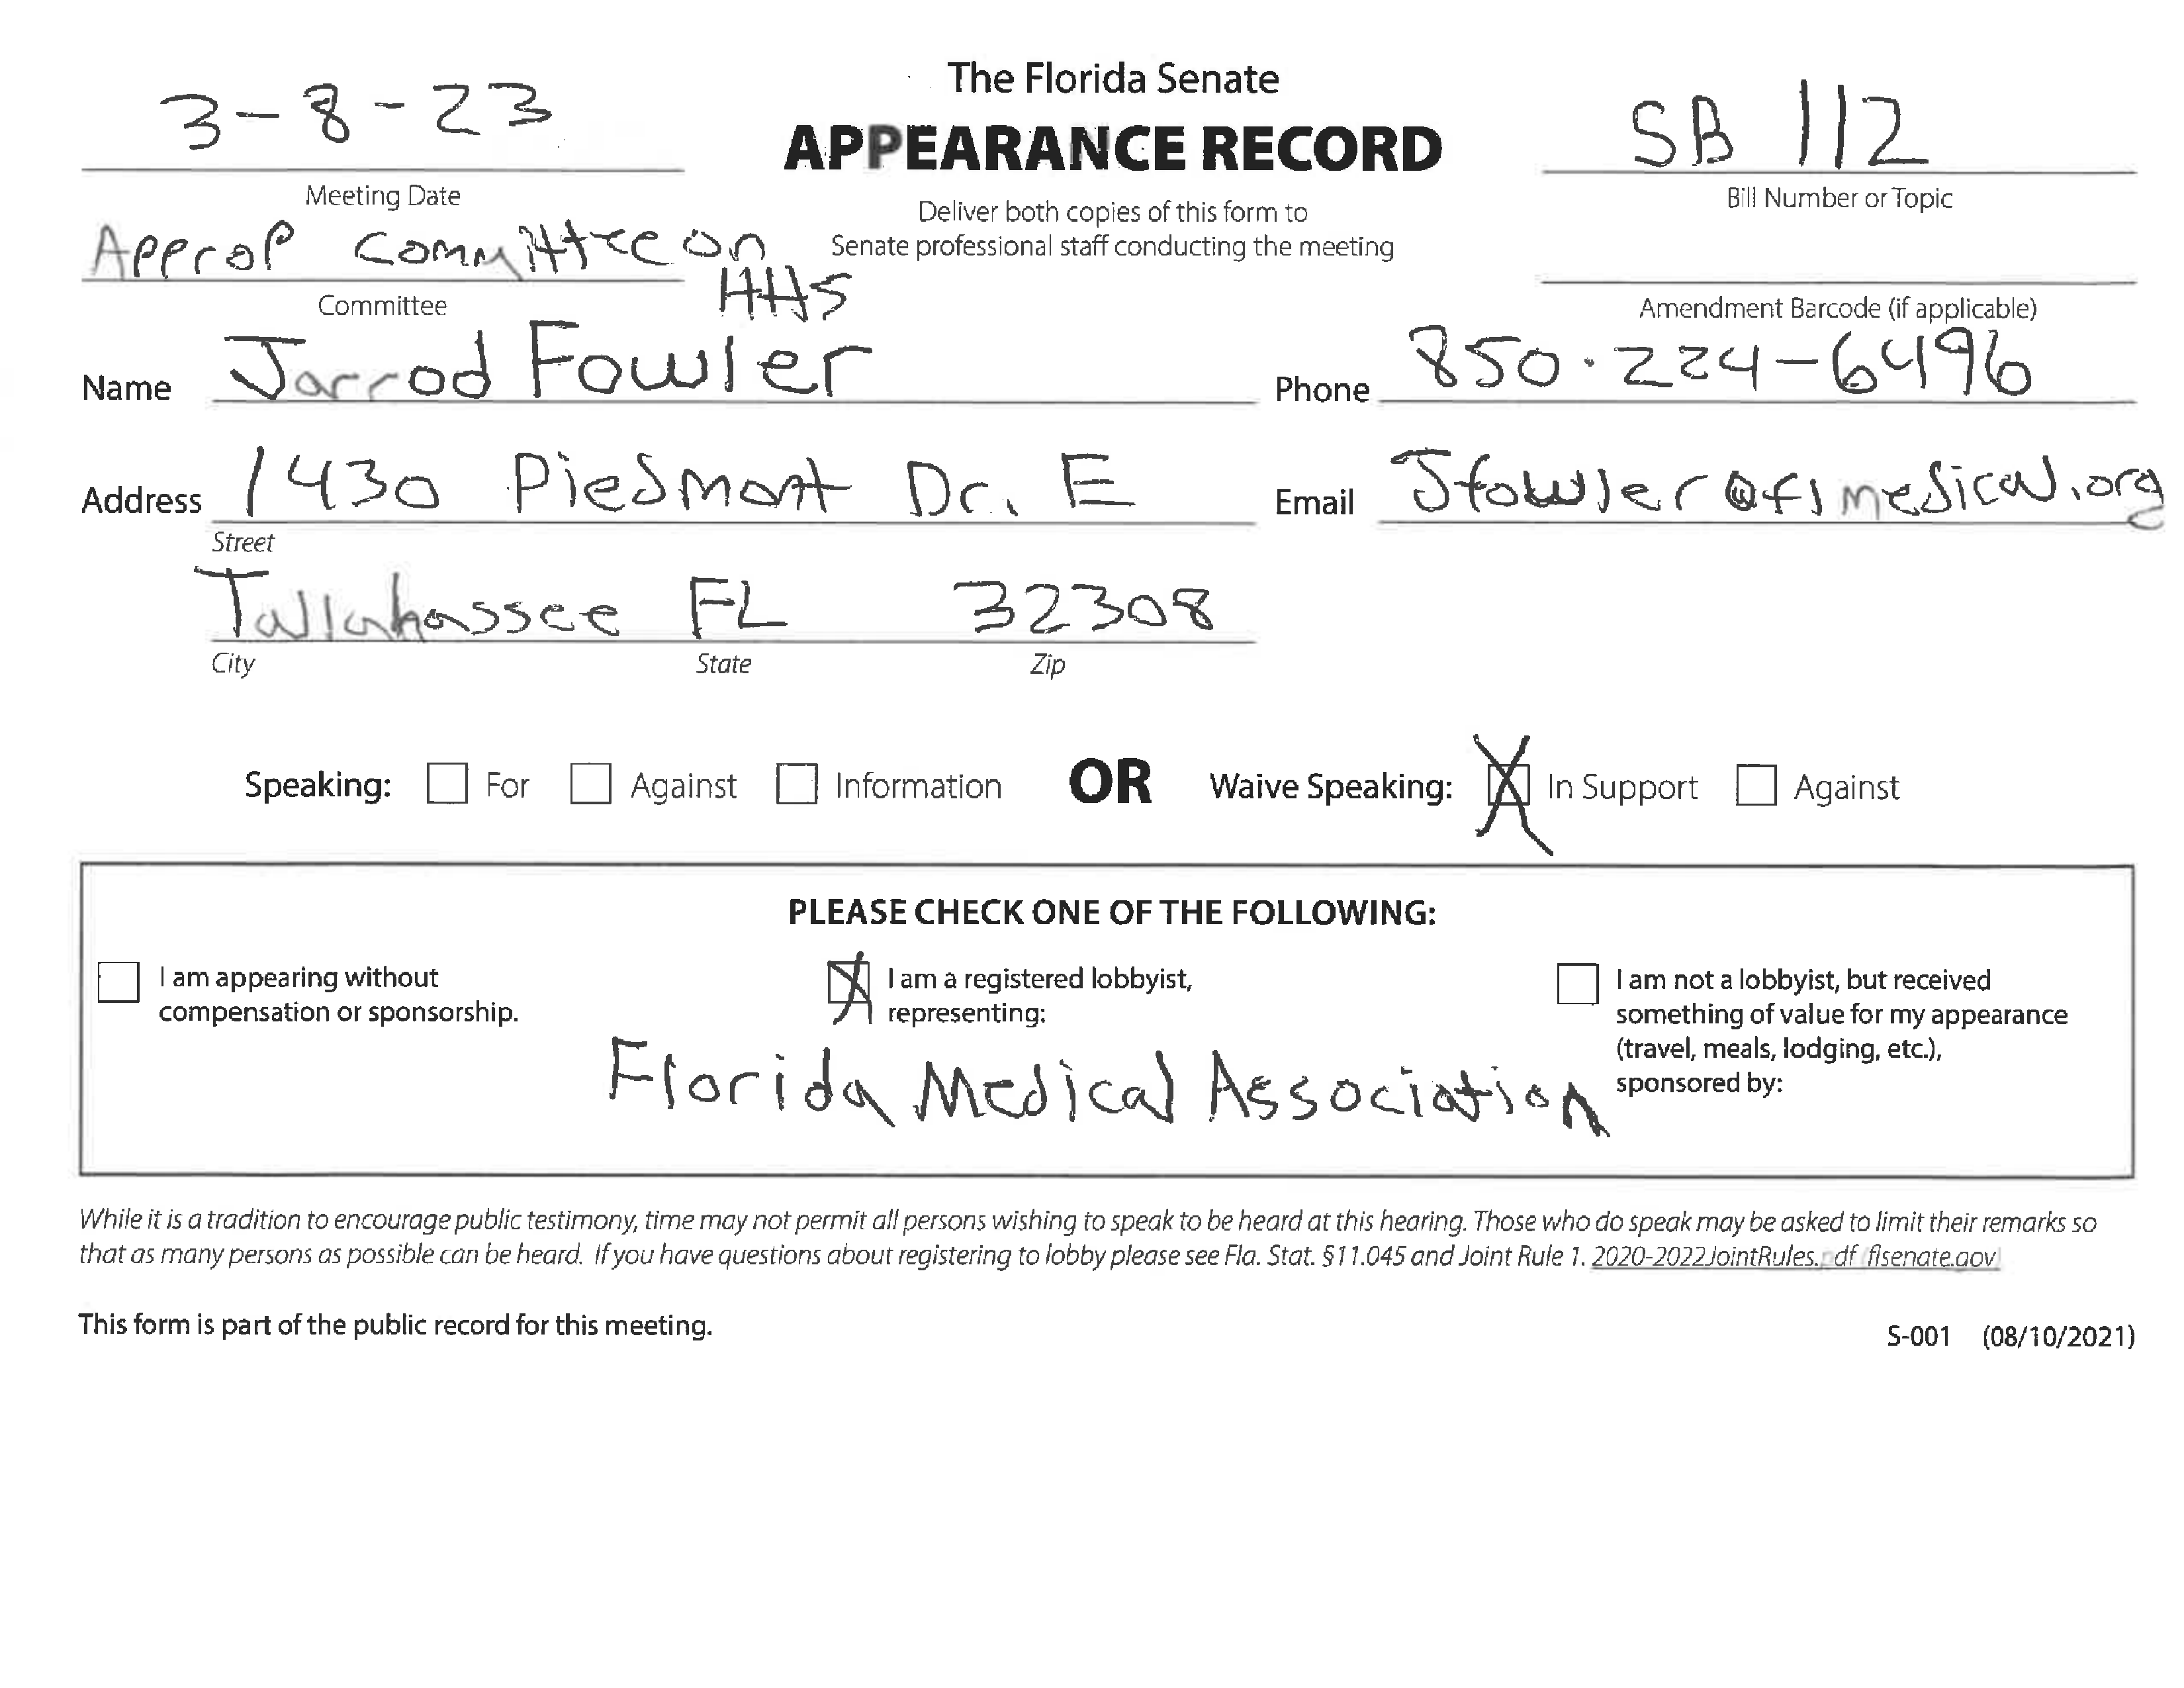 The Florida Senate
3-8-23
APPEARANCE RECORD
SB 112
Meeting Date
Bill Number or Topic
Deliver both copies of this form to
Senate professional staff conducting the meeting
Approp Committee on
HHS
Committee
Amendment Barcode (if applicable)
Name Jarrod Fowler
Phone 850.224-6496
Address 1430 Piedmont Dr. E
Email Jfowler@flmedical.org
Street
Tallahassee FL 32308
City State Zip
Speaking: For Against Information OR Waive Speaking: In Support Against
PLEASE CHECK ONE OF THE FOLLOWING:
I am appearing without
compensation or sponsorship.
I am a registered lobbyist,
representing:
Florida Medical Association
I am not a lobbyist, but received
something of value for my appearance
(travel, meals, lodging, etc.),
sponsored by:
While it is a tradition to encourage public testimony, time may not permit all persons wishing to speak to be heard at this hearing. Those who do speak may be asked to limit their remarks so
that as many persons as possible can be heard. If you have questions about registering to lobby please see Fla. Stat. §11.045 and Joint Rule 1. 2020-2022JointRules.pdf flsenate.gov
This form is part of the public record for this meeting.
S-001 (08/10/2021)